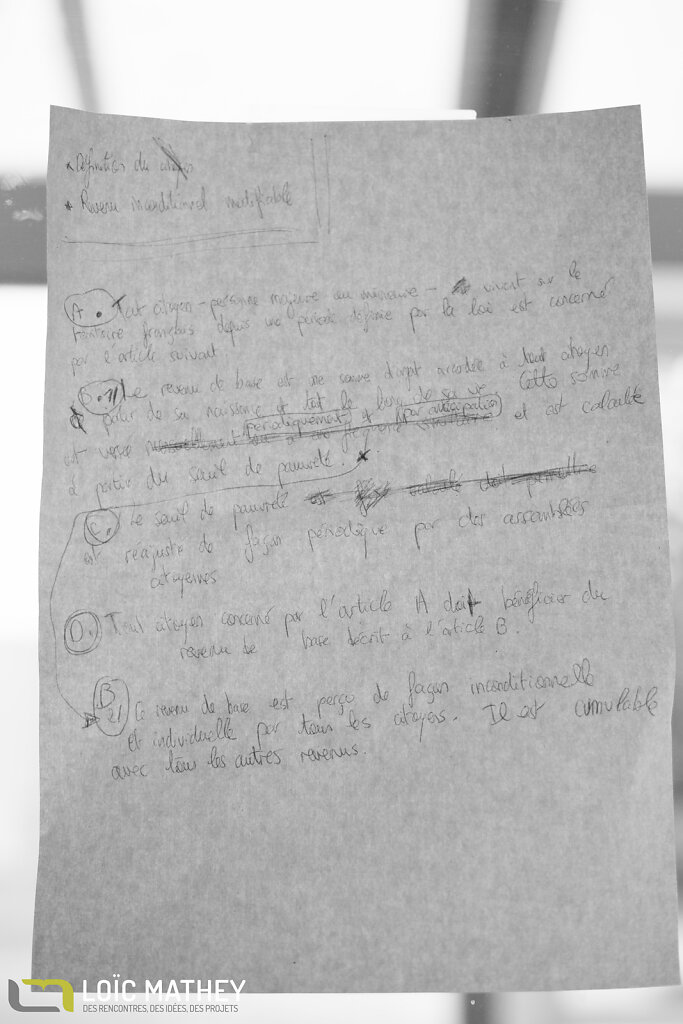 * Définition du citoyen
* Revenu inconditionnel modifiable
A. Tout citoyen - personne majeure ou mineure - vivant sur le
territoire français depuis une période définie par la loi est concerné
par l'article suivant.
B.1/ Le revenu de base est une somme d'argent accordée à tout citoyen
à partir de sa naissance et tout le long de sa vie. Cette somme
est versée périodiquement par anticipation et est calculée
à partir du seuil de pauvreté.
C. Le seuil de pauvreté est calculé doit permettre
est réajusté de façon périodique par des assemblées
citoyennes
D. Tout citoyen concerné par l'article A doit bénéficier du
revenu de base décrit à l'article B.
B 2/ Ce revenu de base est perçu de façon inconditionnelle
et individuelle par tous les citoyens. Il est cumulable
avec tous les autres revenus.
LOÏC MATHEY
DES RENCONTRES, DES IDÉES, DES PROJETS